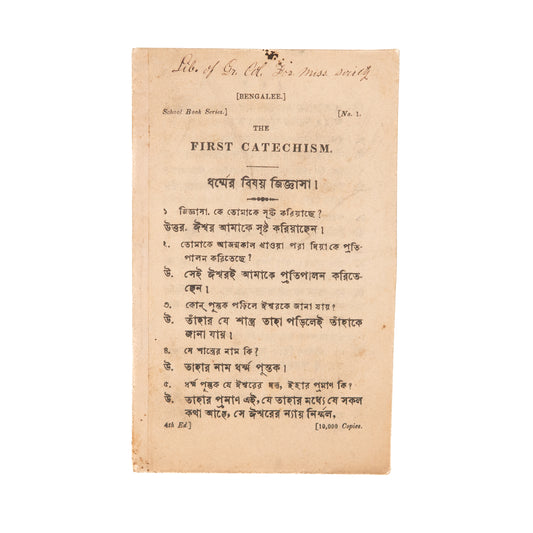 Lib. of Gr. Cd. For miss. society
[BENGALEE.]
School Book Series.] [No. 1.
THE
FIRST CATECHISM.
ধর্ম্মের বিষয় জিজ্ঞাসা।
১ জিজ্ঞাসা. কে তোমাকে সৃষ্টি করিয়াছে?
উত্তর. ঈশ্বর আমাকে সৃষ্টি করিয়াছেন।
২. তোমাকে আজন্মকাল খাওয়া পরা দিয়া কে প্রতি-
পালন করিতেছে?
উ. সেই ঈশ্বরই আমাকে প্রতিপালন করিতে-
ছেন।
৩. কোন্ পুস্তক পড়িলে ঈশ্বরকে জানা যায়?
উ. তাঁহার যে শাস্ত্র তাহা পড়িলেই তাঁহাকে
জানা যায়।
৪. যে শাস্ত্রের নাম কি?
উ. তাহার নাম ধর্ম্ম পুস্তক।
৫. ধর্ম্ম পুস্তক যে ঈশ্বরের দত্ত, ইহার প্রমাণ কি?
উ. তাহার প্রমাণ এই, যে তাহার মধ্যে যে সকল
কথা আছে, সে ঈশ্বরের ন্যায় নির্ম্মল,
4th Ed.] [10,000 Copies.